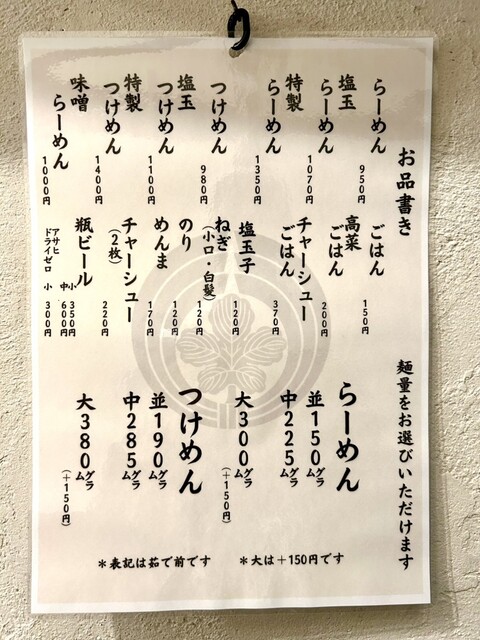 お品書き
麺量をお選びいただけます
らーめん 950円
塩玉らーめん 1070円
特製らーめん 1350円
つけめん 980円
塩玉つけめん 1100円
特製つけめん 1400円
味噌らーめん 1000円
ごはん 150円
高菜ごはん 200円
チャーシューごはん 370円
塩玉子 120円
ねぎ(小口・白髪) 120円
のり 120円
めんま 170円
チャーシュー(2枚) 220円
瓶ビール 小 350円 中 600円
アサヒドライゼロ 小 300円
らーめん
並150グラム
中225グラム
大300グラム(+150円)
つけめん
並190グラム
中285グラム
大380グラム(+150円)
*大は+150円です
*表記は茹で前です